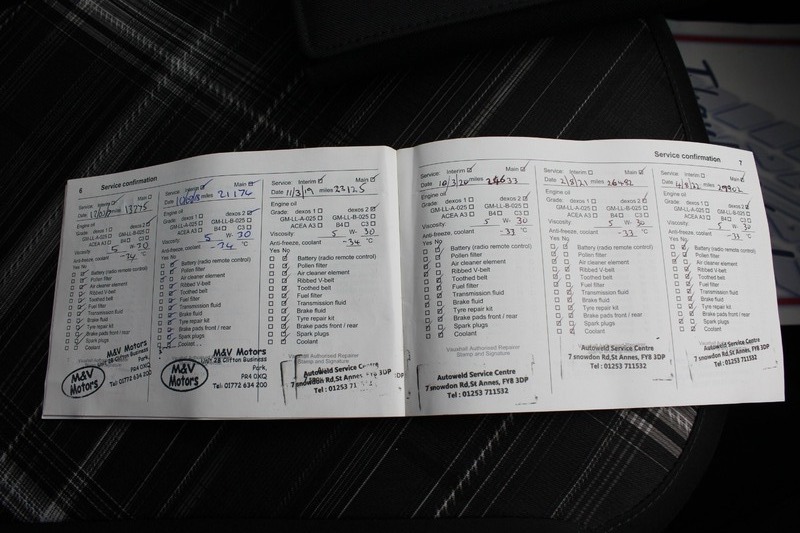 6 Service confirmation
Service: Interim Main
Date miles 13275
Engine oil
Grade: dexos 1 dexos 2
GM-LL-A-025 GM-LL-B-025
ACEA A3 B4 C3
Viscosity: 5 W- 30
Anti-freeze, coolant °C
Yes No
Battery (radio remote control)
Pollen filter
Air cleaner element
Ribbed V-belt
Toothed belt
Fuel filter
Transmission fluid
Brake fluid
Tyre repair kit
Brake pads front / rear
Spark plugs
Coolant
M&V
Motors
M&V Motors
Park,
PR4 0XQ
Tel: 01772 634 200
Service: Interim Main
Date miles 21174
Engine oil
Grade: dexos 1 dexos 2
GM-LL-A-025 GM-LL-B-025
ACEA A3 B4 C3
Viscosity: 5 W- 30
Anti-freeze, coolant -34 °C
Yes No
Battery (radio remote control)
Pollen filter
Air cleaner element
Ribbed V-belt
Toothed belt
Fuel filter
Transmission fluid
Brake fluid
Tyre repair kit
Brake pads front / rear
Spark plugs
Coolant
M&V
Motors
M&V Motors
Unit 28 Clifton Business
Park,
PR4 0XQ
Tel: 01772 634 200
Service: Interim Main
Date 11/3/19 miles 23125
Engine oil
Grade: dexos 1 dexos 2
GM-LL-A-025 GM-LL-B-025
ACEA A3 B4 C3
Viscosity 5 W- 30
Anti-freeze, coolant -34 °C
Yes No
Battery (radio remote control)
Pollen filter
Air cleaner element
Ribbed V-belt
Toothed belt
Fuel filter
Transmission fluid
Brake fluid
Tyre repair kit
Brake pads front / rear
Spark plugs
Coolant
Vauxhall Authorised Repairer
Stamp and Signature
Autoweld Service Centre
7 snowdon Rd,St Annes, FY8 3DP
Tel : 01253
Service confirmation 7
Service: Interim Main
Date 10/3/20 miles 24633
Engine oil
Grade: dexos 1 dexos 2
GM-LL-A-025 GM-LL-B-025
ACEA A3 B4 C3
Viscosity: 5 W- 30
Anti-freeze, coolant -33 °C
Yes No
Battery (radio remote control)
Pollen filter
Air cleaner element
Ribbed V-belt
Toothed belt
Fuel filter
Transmission fluid
Brake fluid
Tyre repair kit
Brake pads front / rear
Spark plugs
Coolant
Vauxhall Authorised Repairer
Stamp and Signature
Autoweld Service Centre
7 snowdon Rd,St Annes, FY8 3DP
Tel : 01253 711532
Service: Interim Main
Date 2/8/21 miles 26482
Engine oil
Grade: dexos 1 dexos 2
GM-LL-A-025 GM-LL-B-025
ACEA A3 B4 C3
Viscosity: 5 W- 30
Anti-freeze, coolant -33 °C
Yes No
Battery (radio remote control)
Pollen filter
Air cleaner element
Ribbed V-belt
Toothed belt
Fuel filter
Transmission fluid
Brake fluid
Tyre repair kit
Brake pads front / rear
Spark plugs
Coolant
Autoweld Service Centre
7 snowdon Rd,St Annes, FY8 3DP
Tel : 01253 711532
Service: Interim Main
Date 4/8/22 miles 29902
Engine oil
Grade: dexos 1 dexos 2
GM-LL-A-025 GM-LL-B-025
ACEA A3 B4 C3
Viscosity: 5 W- 30
Anti-freeze, coolant °C
Yes No
Battery (radio remote control)
Pollen filter
Air cleaner element
Ribbed V-belt
Toothed belt
Fuel filter
Transmission fluid
Brake fluid
Tyre repair kit
Brake pads front / rear
Spark plugs
Coolant
Autoweld Service Centre
7 snowdon Rd,St Annes, FY8 3DP
Tel : 01253 711532